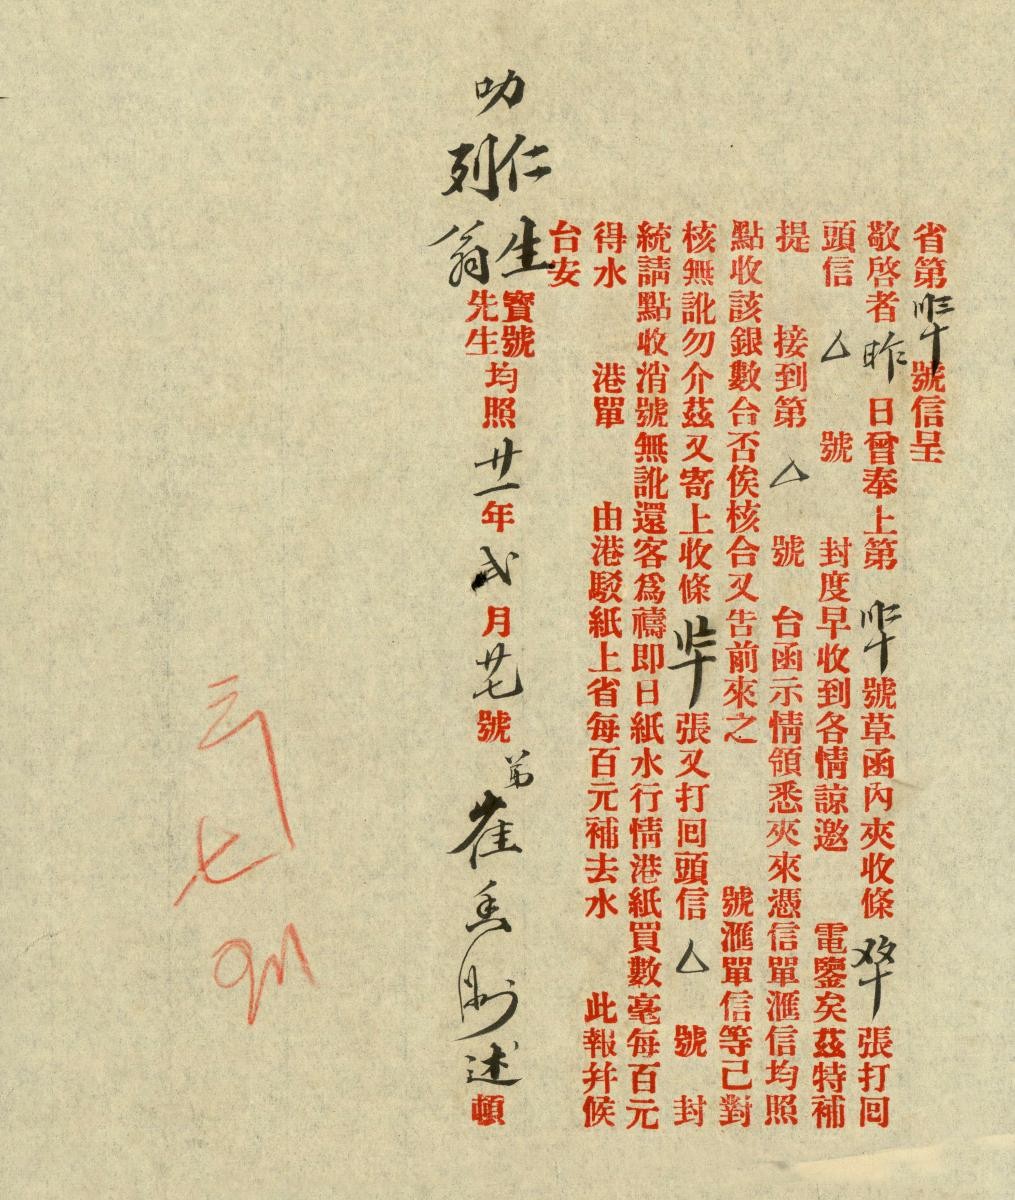 省第號信呈
敬啓者昨日曾奉上第號草函內夾收條張打囘
頭信△號封度早收到各情諒邀電鑒矣茲特補
提接到第△號台函示情領悉夾來憑信單滙信均照
點收該銀數台否俟核合又告前來之號滙單信等己對
核無訛勿介茲又寄上收條張又打囘頭信△號封
統請點收消號無訛還客爲禱即日紙水行情港紙買數毫每百元
得水港單由港駁紙上省每百元補去水此報幷候
台安
叻仁生寶號
列翁先生均照廿一年弍月廿七號弟崔述頓
三
七